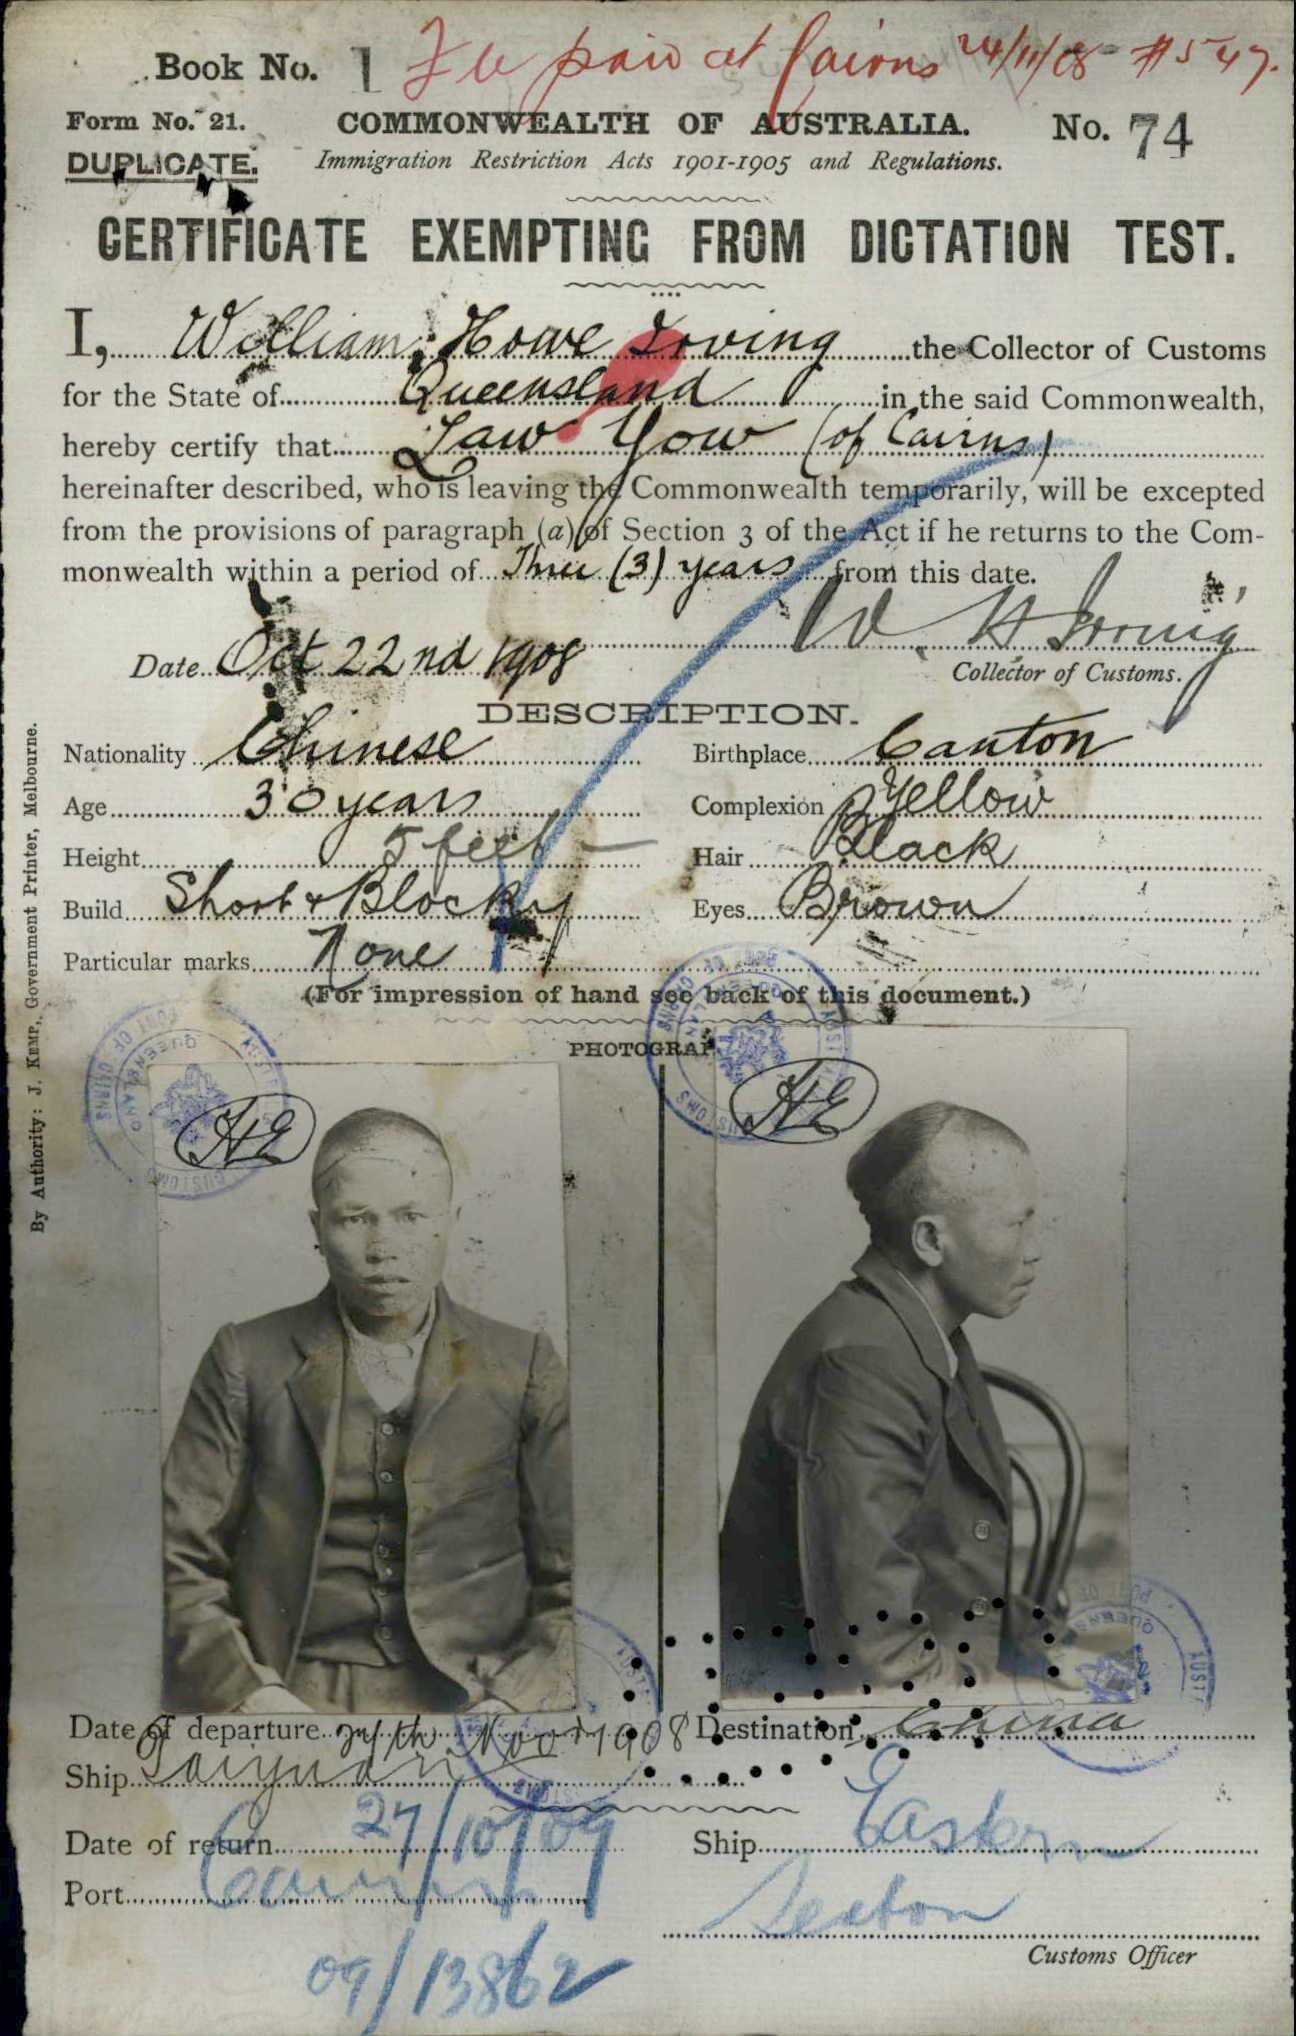 Book No. 1 Fee paid at Cairns 24/11/08 #547.
Form No. 21. COMMONWEALTH OF AUSTRALIA. No. 74
DUPLICATE. Immigration Restriction Acts 1901-1905 and Regulations.
CERTIFICATE EXEMPTING FROM DICTATION TEST.
I, William Howe Irving the Collector of Customs
for the State of Queensland in the said Commonwealth,
hereby certify that Law Yow (of Cairns)
hereinafter described, who is leaving the Commonwealth temporarily, will be excepted
from the provisions of paragraph (a) of Section 3 of the Act if he returns to the Com-
monwealth within a period of Three (3) years from this date.
W. H. Irving
Date Oct 22nd 1908 Collector of Customs.
DESCRIPTION.
Nationality Chinese Birthplace Canton
Age 30 years Complexion Yellow
Height 5 feet – Hair Black
Build Short & Blocky Eyes Brown
Particular marks None
(For impression of hand see back of this document.)
PHOTOGRAP
HE HE
By Authority: J. Kemp, Government Printer, Melbourne.
Date of departure 24th Novr 1908 Destination China
Ship Taiyuan
Date of return 27/10/09 Ship Eastern
Port Cairns
Customs Officer
09/13862